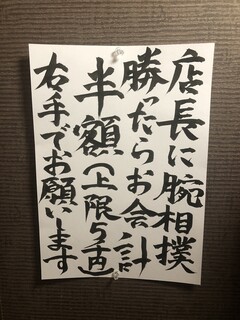 店長に腕相撲
勝ったらお会計
半額(上限5千円)
右手でお願いします